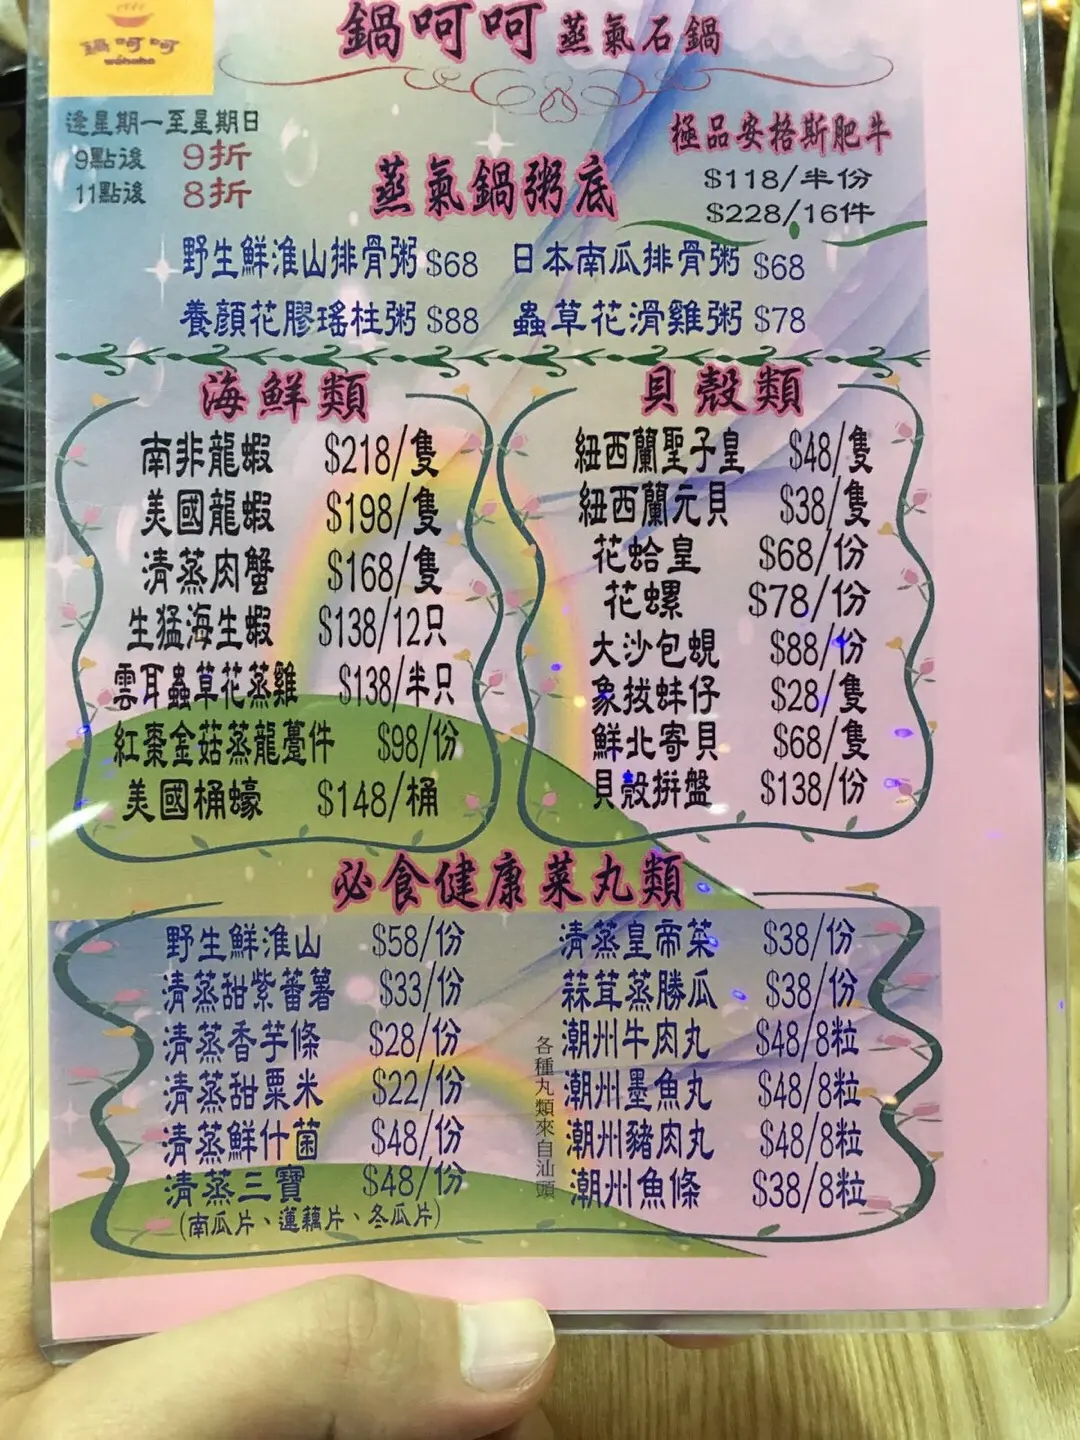 鍋呵呵
wohaha
鍋呵呵 蒸氣石鍋
逢星期一至星期日
9點後 9折
11點後 8折
極品安格斯肥牛
$118/半份
$228/16件
蒸氣鍋粥底
野生鮮淮山排骨粥 $68 日本南瓜排骨粥 $68
養顏花膠瑤柱粥 $88 蟲草花滑雞粥 $78
海鮮類
南非龍蝦 $218/隻
美國龍蝦 $198/隻
清蒸肉蟹 $168/隻
生猛海生蝦 $138/12只
雲耳蟲草花蒸雞 $138/半只
紅棗金菇蒸龍躉件 $98/份
美國桶蠔 $148/桶
貝殼類
紐西蘭聖子皇 $48/隻
紐西蘭元貝 $38/隻
花蛤皇 $68/份
花螺 $78/份
大沙包蜆 $88/份
象拔蚌仔 $28/隻
鮮北寄貝 $68/隻
貝殼拼盤 $138/份
必食健康菜丸類
野生鮮淮山 $58/份
清蒸甜紫蕃薯 $33/份
清蒸香芋條 $28/份
清蒸甜粟米 $22/份
清蒸鮮什菌 $48/份
清蒸三寶 $48/份
(南瓜片、蓮藕片、冬瓜片)
各種丸類來自汕頭
清蒸皇帝菜 $38/份
蒜茸蒸勝瓜 $38/份
潮州牛肉丸 $48/8粒
潮州墨魚丸 $48/8粒
潮州豬肉丸 $48/8粒
潮州魚條 $38/8粒